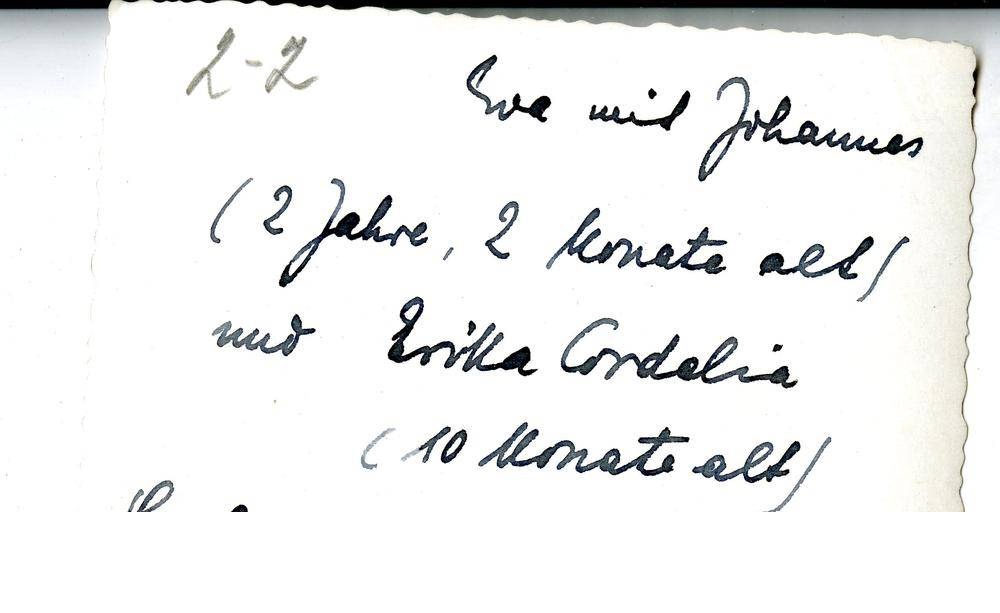 2-2
Eva mit Johannes
(2 Jahre, 2 Monate alt)
und Erika Cordelia
(10 Monate alt)